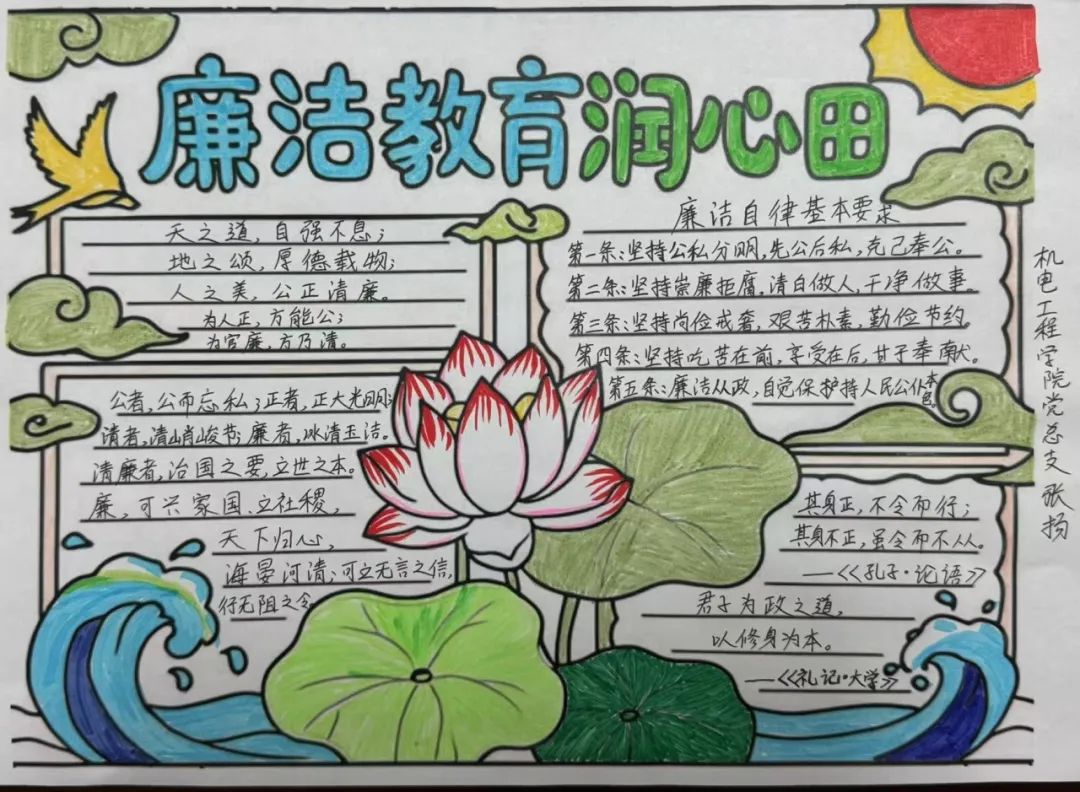 廉洁教育润心田
天之道，自强不息；
地之颂，厚德载物；
人之美，公正清廉。
为人正，方能公；
为官廉，方乃清。
公者，公而忘私；正者，正大光明；
清者，清峭峻节；廉者，冰清玉洁。
清廉者，治国之要，立世之本。
廉，可兴家国、立社稷，
天下归心，
海晏河清；可立无言之信，
行无阻之令。
廉洁自律基本要求
第一条：坚持公私分明，先公后私，克己奉公。
第二条：坚持崇廉拒腐，清白做人，干净做事。
第三条：坚持尚俭戒奢，艰苦朴素，勤俭节约。
第四条：坚持吃苦在前，享受在后，甘于奉献。
第五条：廉洁从政，自觉保护持人民公仆本色。
其身正，不令而行；
其身不正，虽令而不从。
——《孔子·论语》
君子为政之道，
以修身为本。
——《礼记·大学》
机电工程学院党总支 张扬